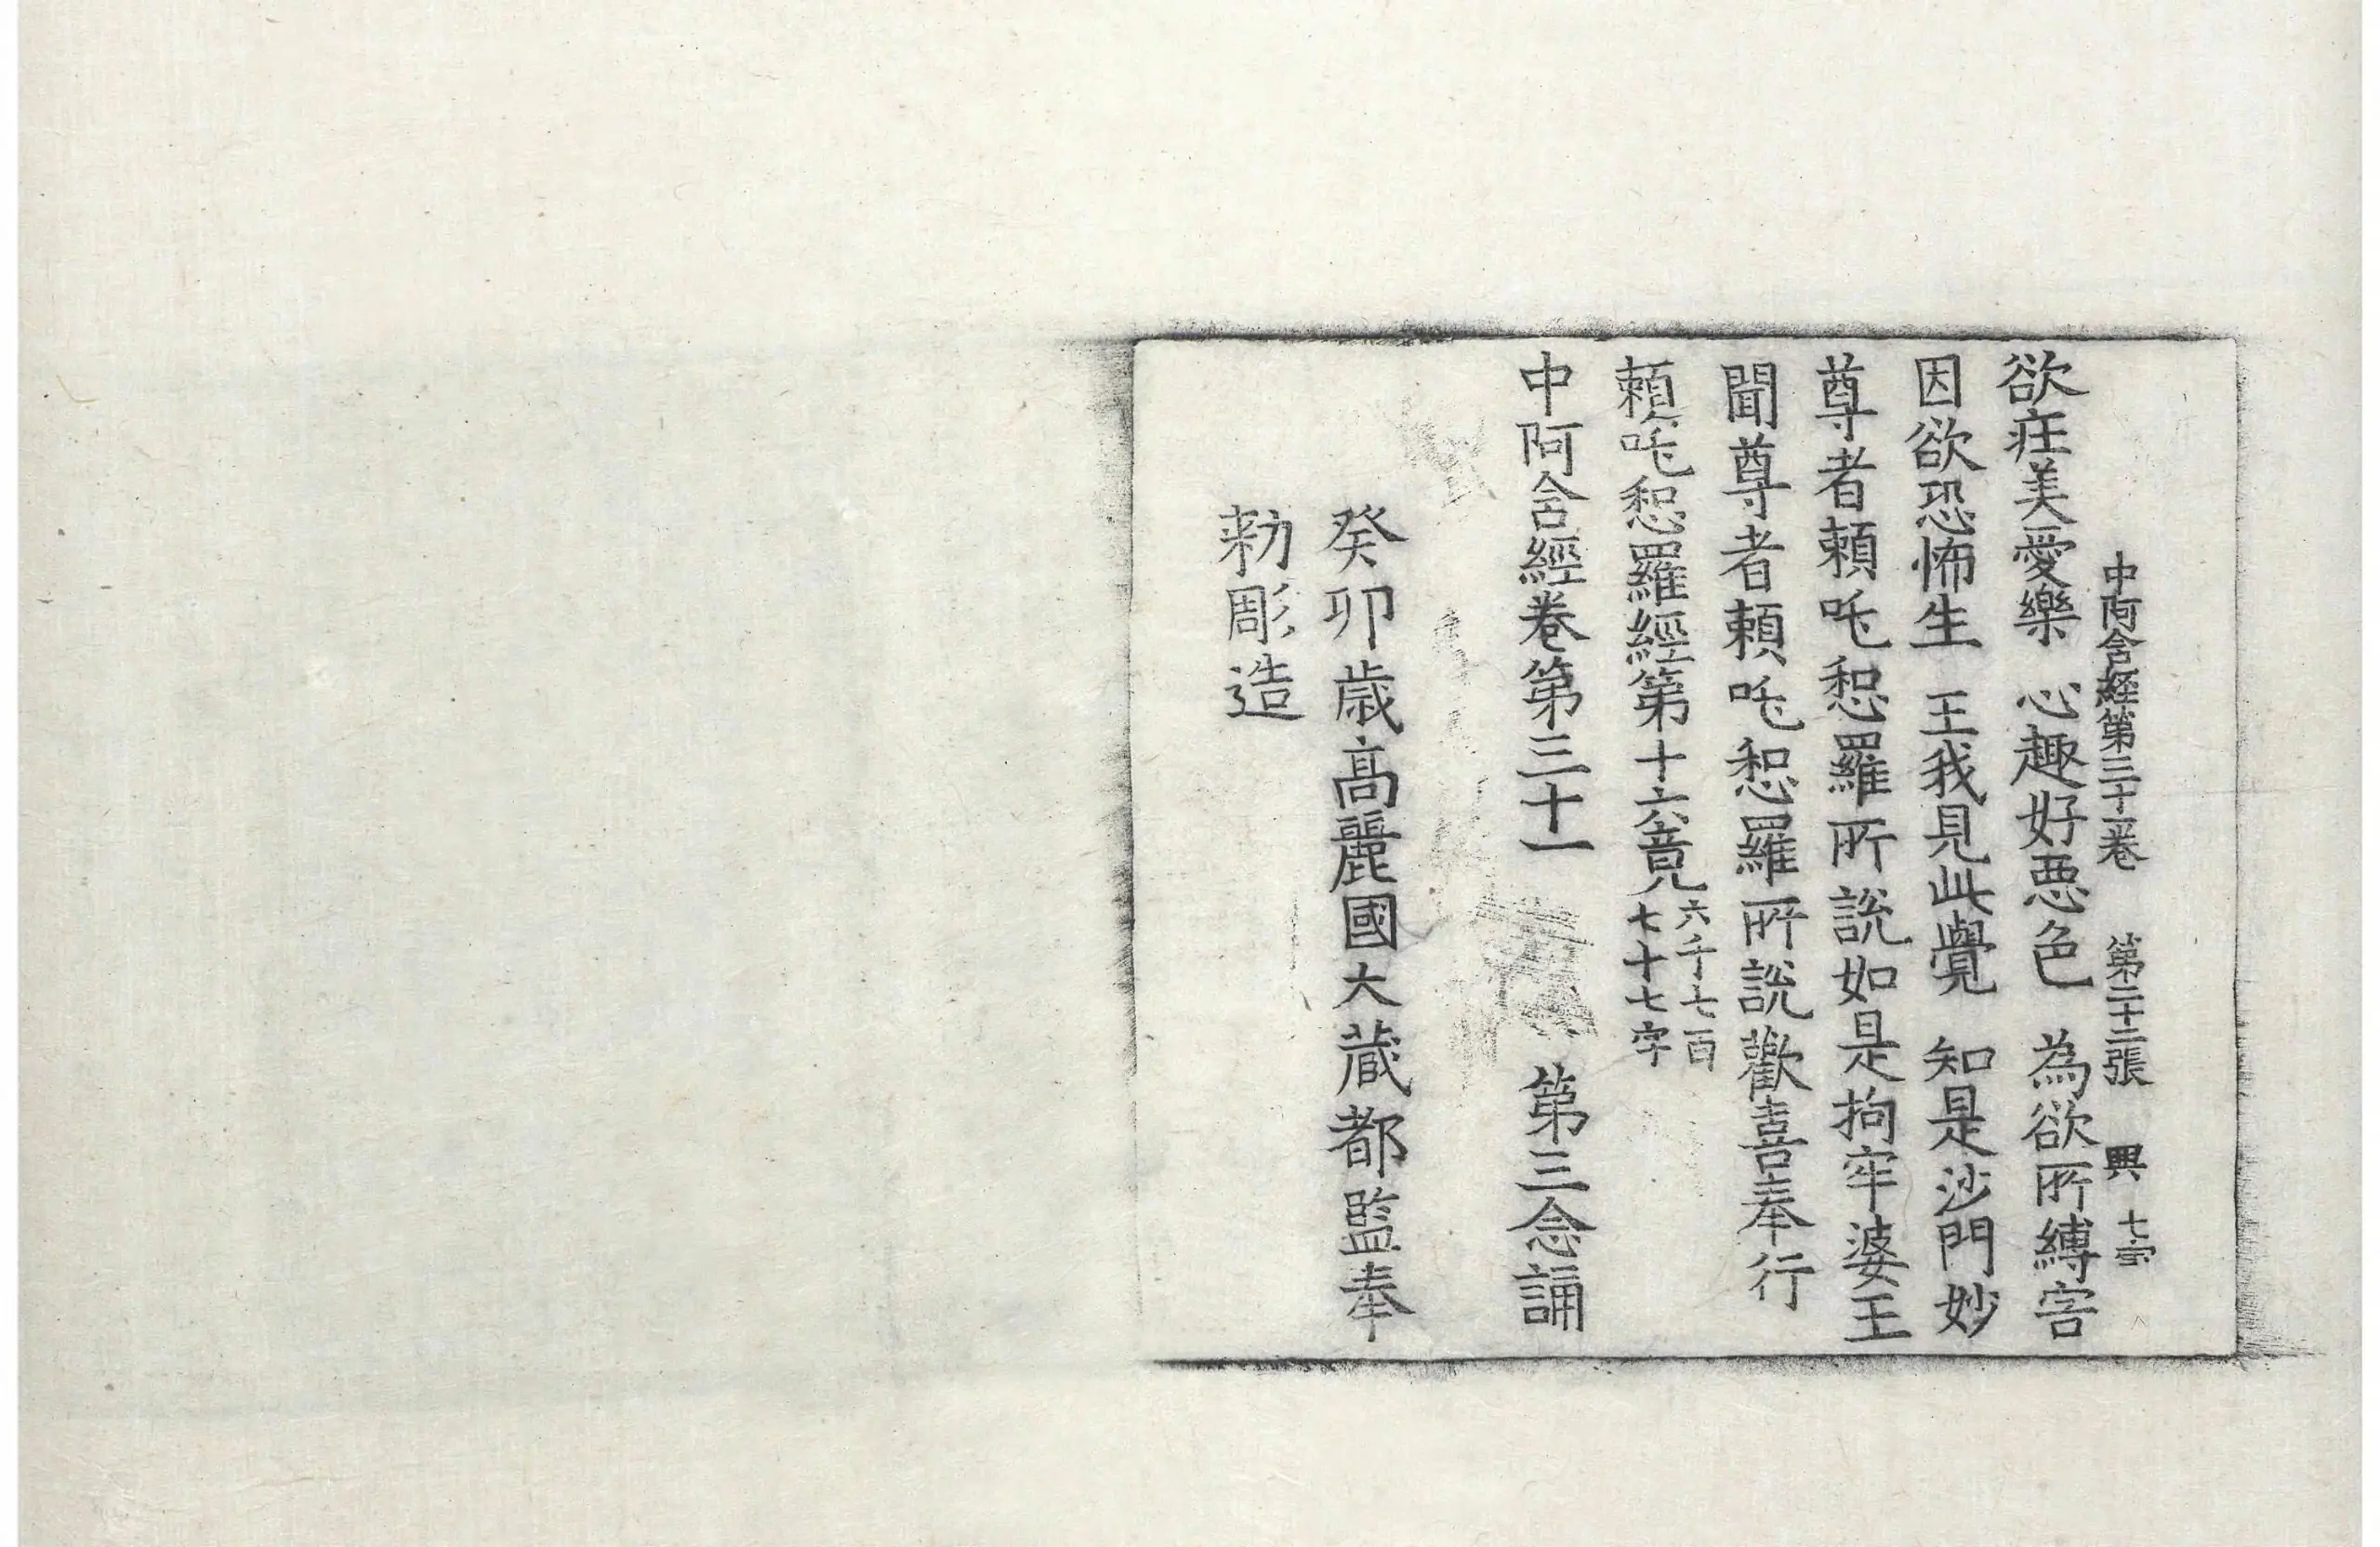 中阿含経第三十一卷　第二十二張　興　七宗
欲疰美愛樂　心趣好悪色　為欲所縛害
因欲恐怖生　王我見此覺　知是沙門妙
尊者頼吒惒羅所說如是拘牢婆王
聞尊者頼吒惒羅所說歡喜奉行
頼吒惒羅經第十六竟六千七百
七十七字
中阿含經卷第三十一　第三念誦
癸卯歳髙麗國大蔵都監奉
勑彫造